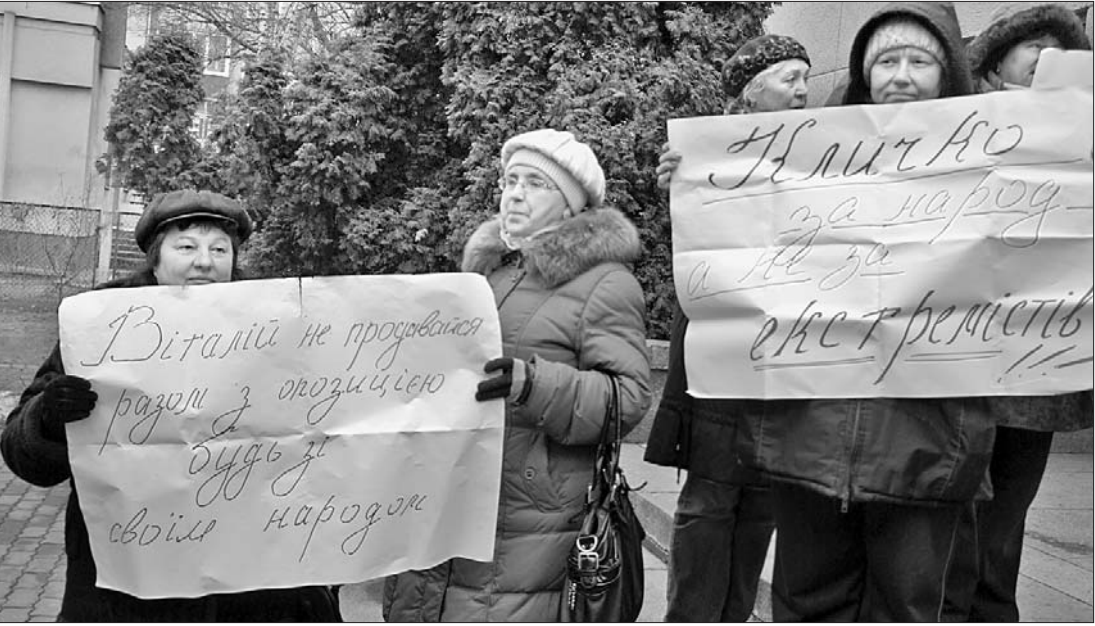 Віталій не продавайся
разом з опозицією
будь зі
своїм народом
Кличко
за народ
а не за
екстремістів
!!!